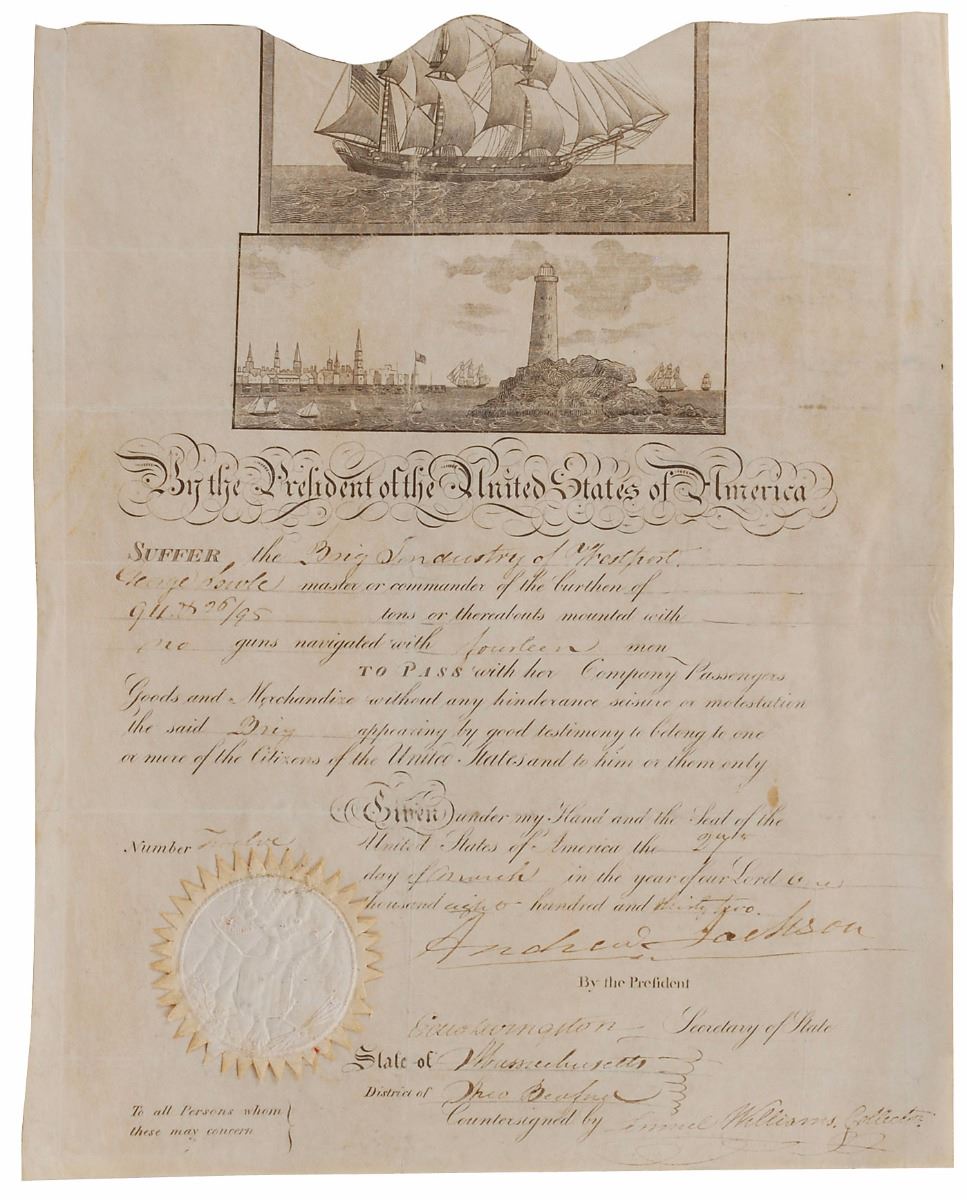 By the President of the United States of America
SUFFER the Brig Industry of Westport
George Sowle master or commander of the burthen of
94 & 26/95 tons or thereabouts mounted with
no guns navigated with fourteen men
TO PASS with her Company Passengers
Goods and Merchandize without any hinderance seisure or molestation
the said Brig appearing by good testimony to belong to one
or more of the Citizens of the United States and to him or them only
Given under my Hand and the Seal of the
Number Twelve
United States of America the 27th
day of March in the year of our Lord one
thousand eight hundred and thirty two.
Andrew Jackson
By the President
Edw Livingston Secretary of State
State of Massachusetts
District of New Bedford
Countersigned by Lemuel Williams, Collector
To all Persons whom
these may concern